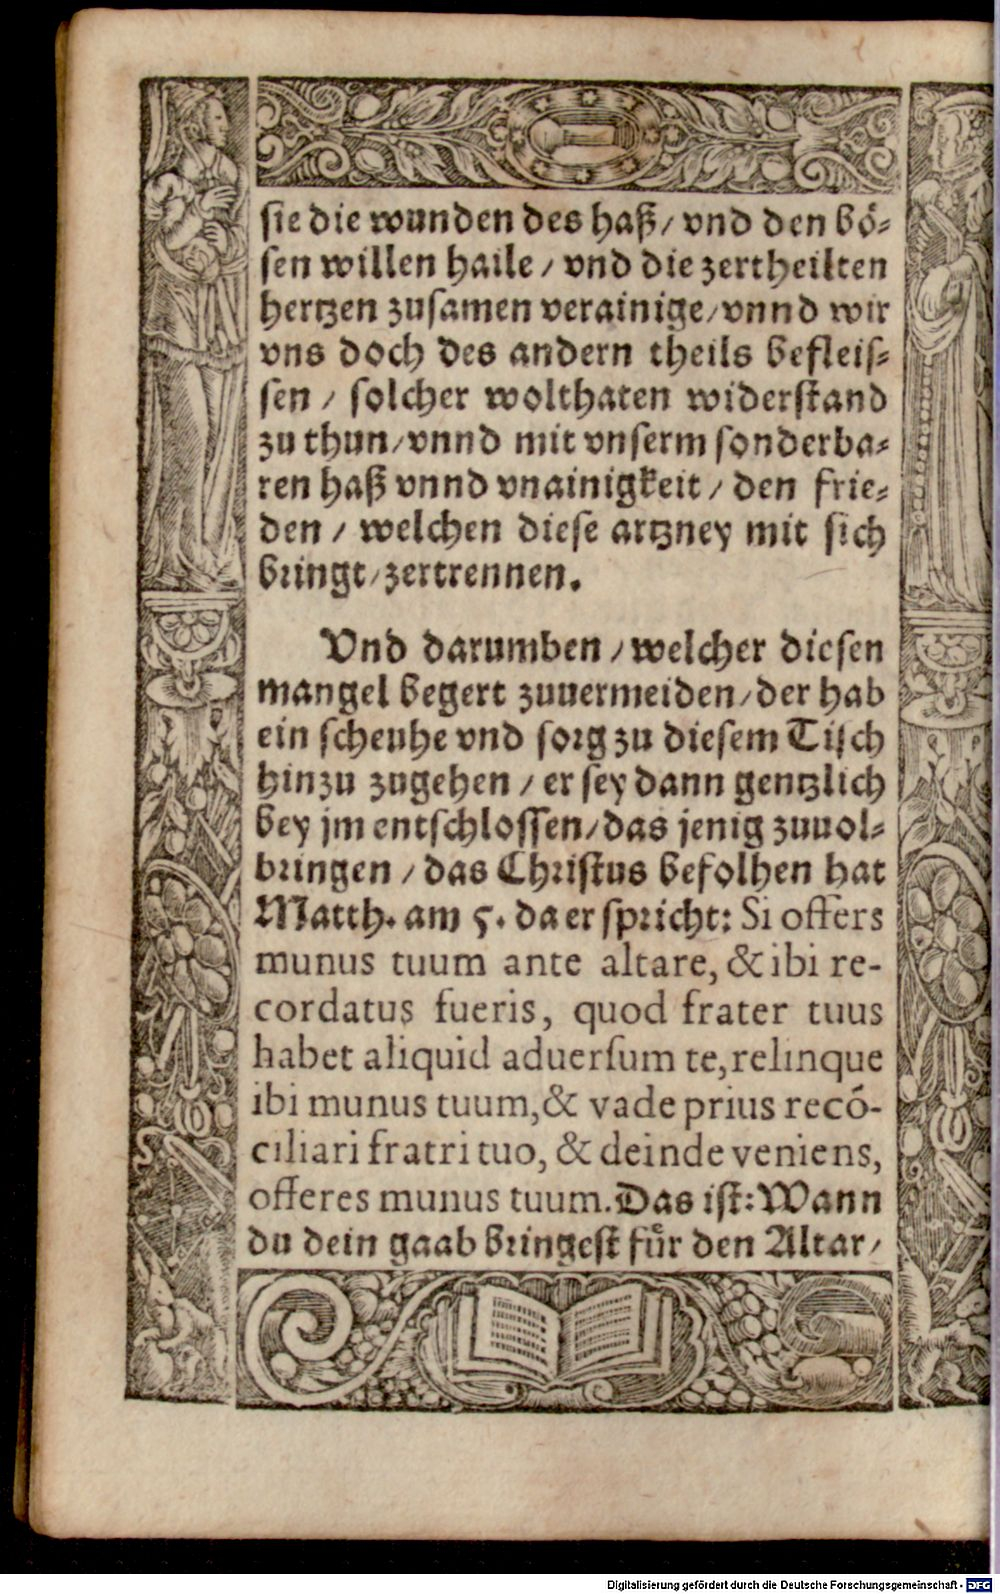 sie die wunden des haß/ vnd den bö⸗
sen willen haile/ vnd die zertheilten
hertzen zusamen verainige/ vnnd wir
vns doch des andern theils befleis⸗
sen/ solcher wolthaten widerstand
zu thun/ vnnd mit vnserm sonderba⸗
ren haß vnnd vnainigkeit/ den frie⸗
den/ welchen diese artzney mit sich
bringt/ zertrennen.
Vnd darumben/ welcher diesen
mangel begert zuuermeiden/ der hab
ein scheuhe vnd sorg zu diesem Tisch
hinzu zugehen/ er sey dann gentzlich
bey jm entschlossen/ das jenig zuuol⸗
bringen/ das Christus befolhen hat
Matth. am 5. da er spricht: Si offers
munus tuum ante altare, & ibi re-
cordatus fueris, quod frater tuus
habet aliquid aduersum te, relinque
ibi munus tuum, & vade prius recō-
ciliari fratri tuo, & deinde veniens,
offeres munus tuum. Das ist: Wann
du dein gaab bringest für den Altar/
Digitalisierung gefördert durch die Deutsche Forschungsgemeinschaft - DFG